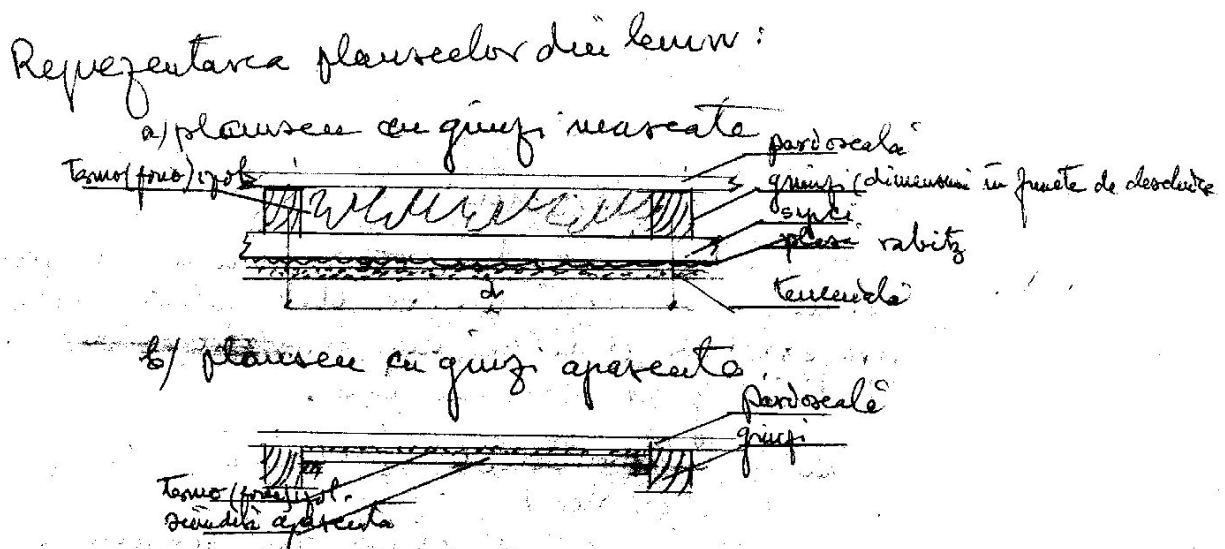 Reprezentarea planseelor din lemn:
a) planseu cu grinzi mascate
termo(fono)izol.
pardoseală
grinzi (dimensiuni in functe de deschidere
sipci
plasă rabitz
tencuială
d
b/ planseu cu grinzi aparente
pardoseală
grinzi
termo(fono)izol.
scândură aparenta